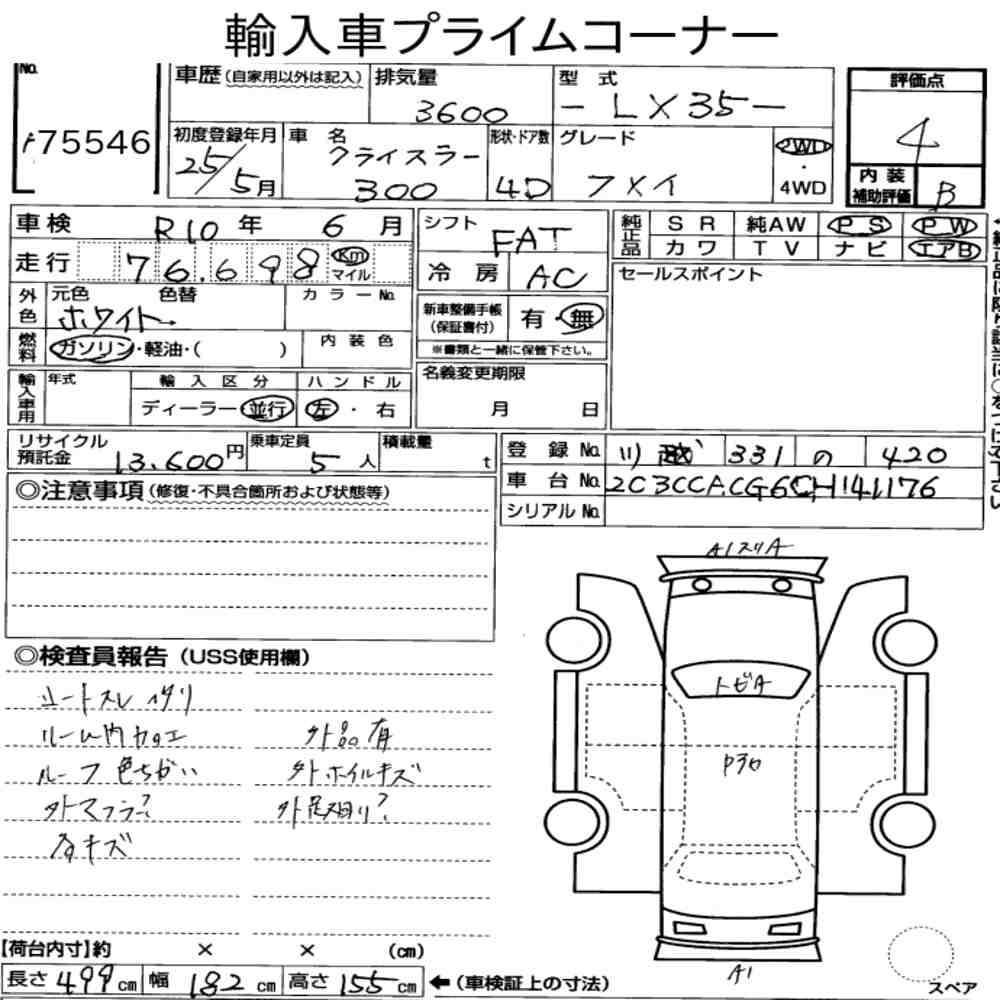 輸入車プライムコーナー
No. 75546
車歴(自家用以外は記入)
排気量 3600
型式 -LX35-
評価点 4
初度登録年月 25/5月
車名 クライスラー 300
形状・ドア数 4D
グレード フメイ
2WD・4WD
内装補助評価 B
車検 R10年 6月
シフト FAT
純正品 SR 純AW PS PW
カワ TV ナビ エアB
走行 76.698 Km マイル
冷房 AC
セールスポイント
外色 元色 色替 カラーNo.
ホワイト
新車整備手帳(保証書付) 有・無
※書類と一緒に保管下さい。
燃料 ガソリン・軽油・( ) 内装色
輸入車用 年式 輸入区分 ハンドル
ディーラー・並行 左・右
名義変更期限
月 日
リサイクル預託金 13.600円
乗車定員 5人
積載量 t
登録No. 川越 331 の 420
車台No. 2C3CCACG6CH141176
シリアルNo.
◎注意事項(修復・不具合箇所および状態等)
◎検査員報告(USS使用欄)
シートスレ ヘタリ
ルーム内カコエ
ルーフ色ちがい
外マフラー?
外品有
外ホイルキズ
外足廻り?
キズ
A1スリA
トビA
A1
スペア
【荷台内寸】約 × × (cm)
長さ 499cm 幅 182cm 高さ 155cm ←(車検証上の寸法)